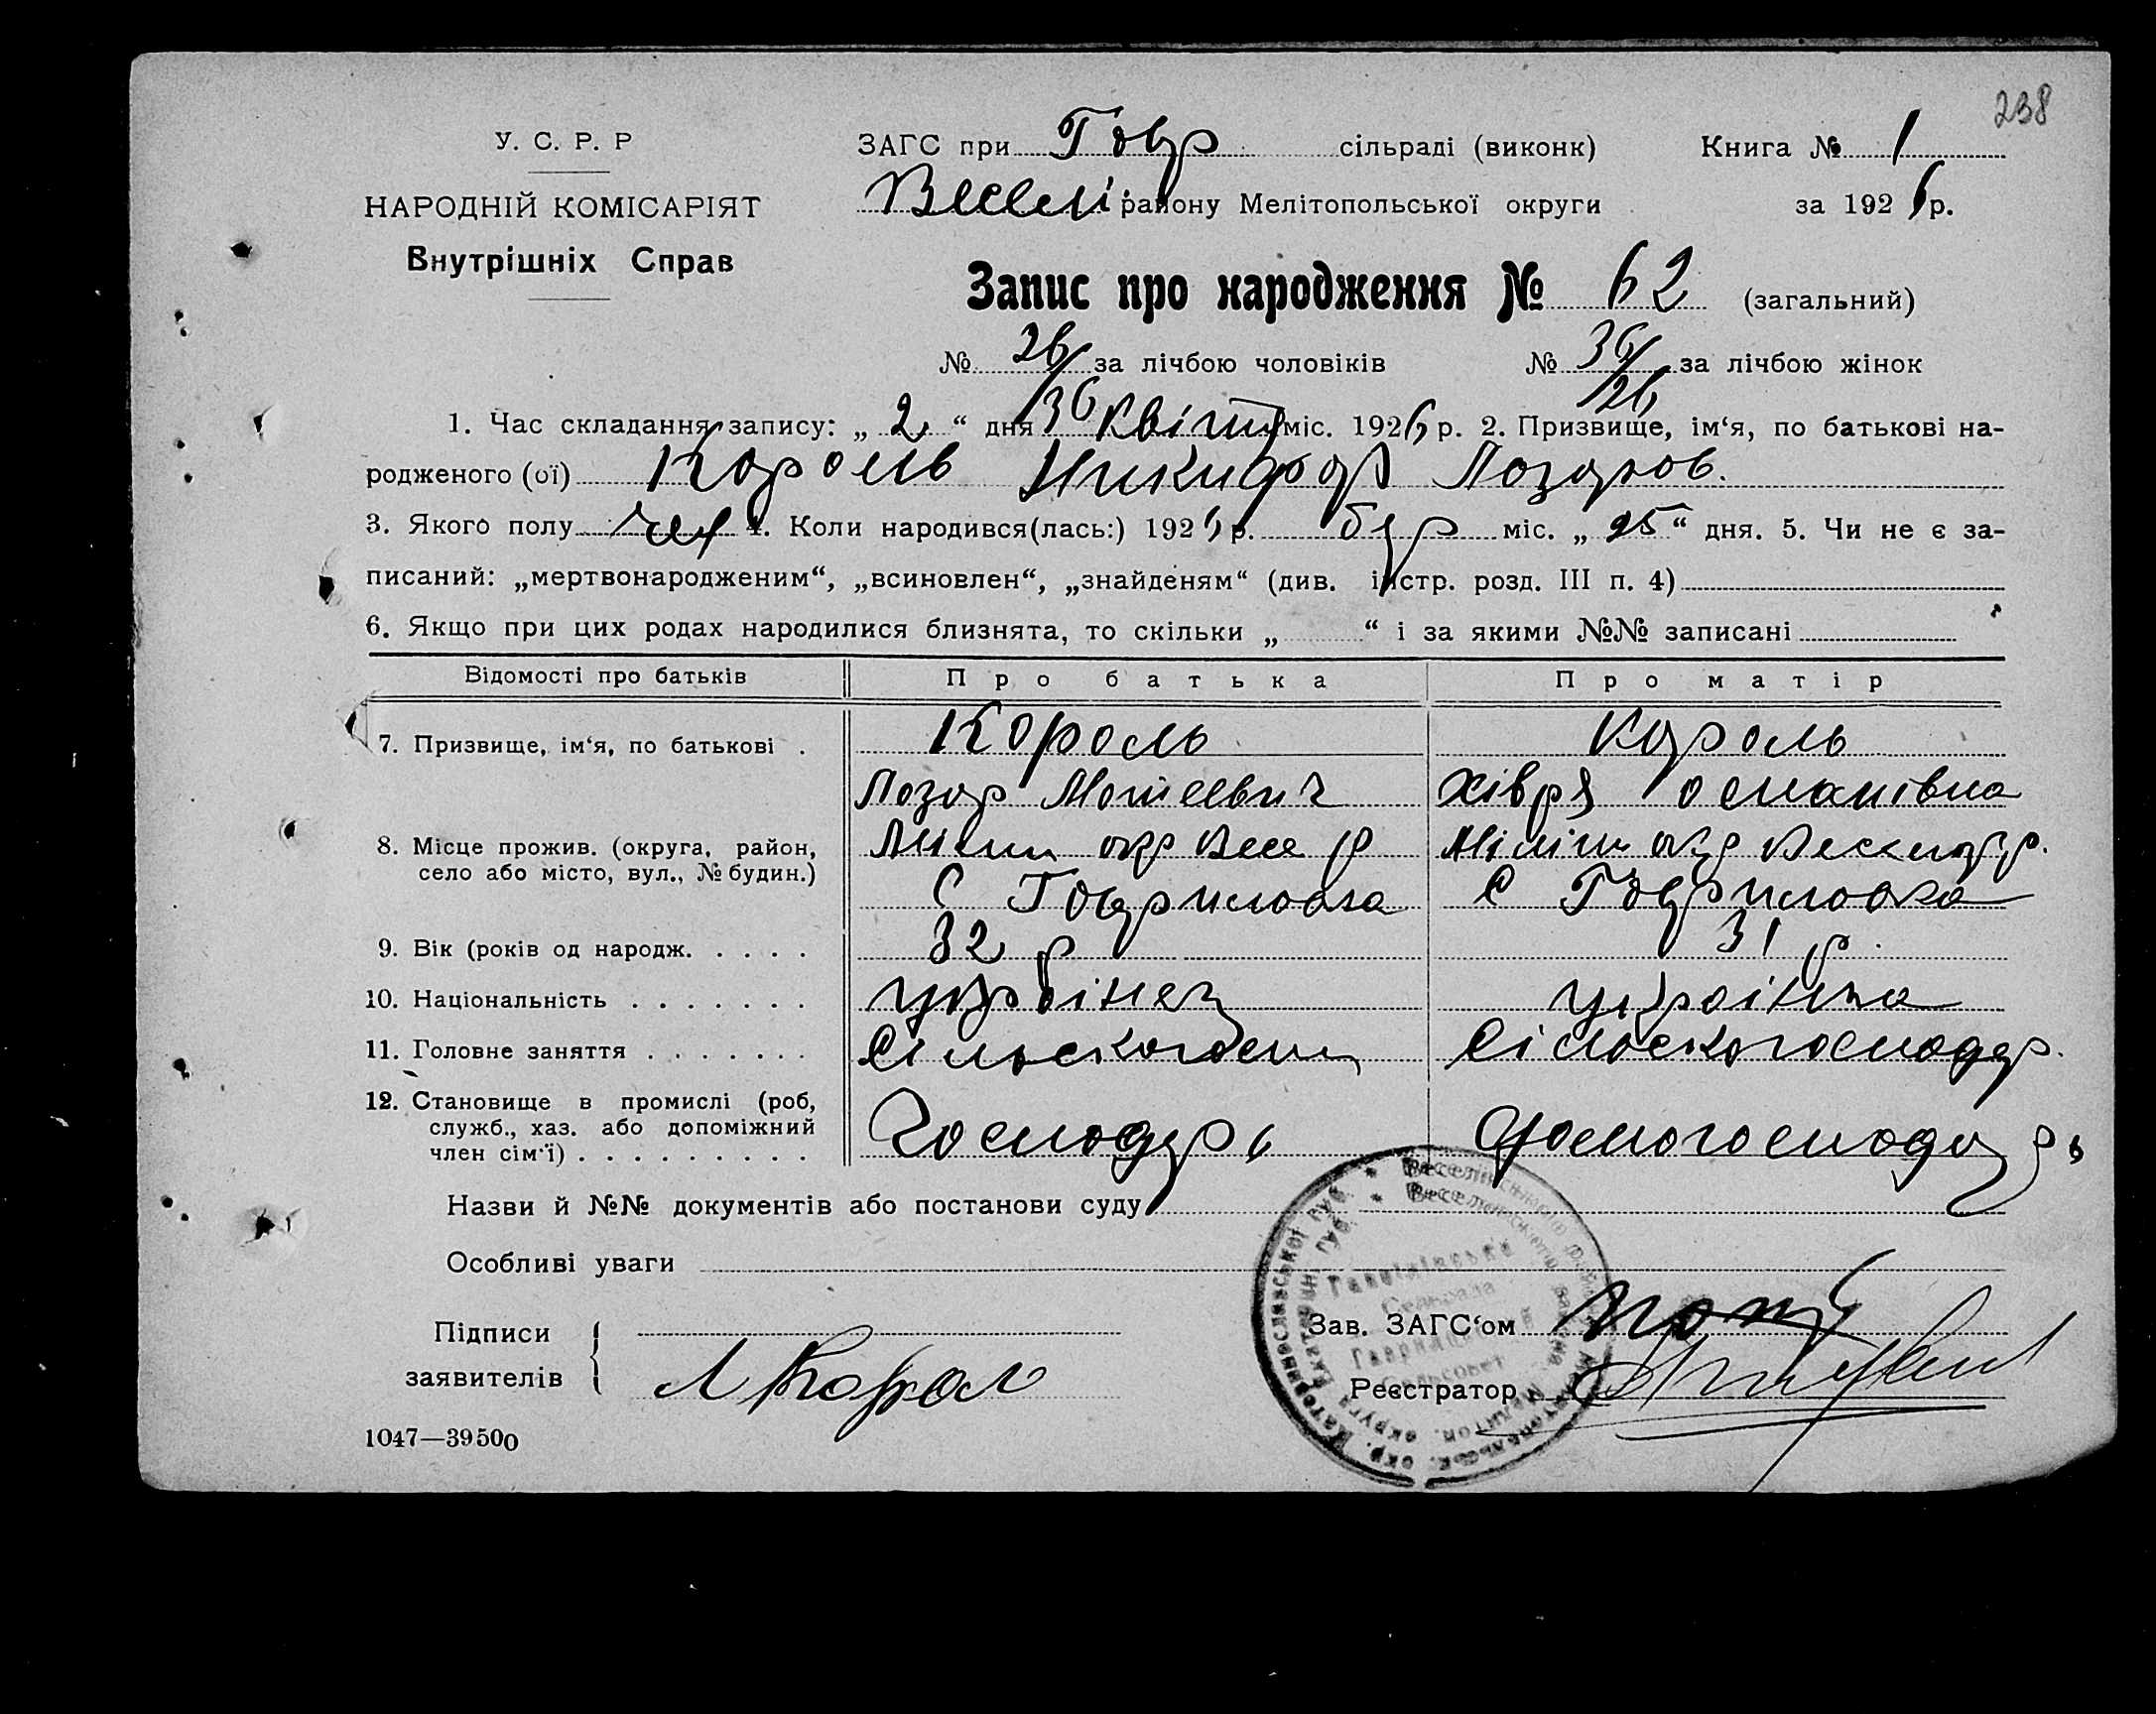 238
У. С. Р. Р
НАРОДНІЙ КОМІСАРІЯТ
Внутрішніх Справ
ЗАГС при Гавр сільраді (виконк) Книга № 1
Веселі району Мелітопольської округи за 1926 р.
Запис про народження № 62 (загальний)
№ 26 за лічбою чоловіків № 36 за лічбою жінок
36 26
1. Час складання запису: „ 2 “ дня Квітня міс. 1926 р. 2. Призвище, ім‘я, по батькові на-
родженого (ої) Король Никифор Лазаров.
3. Якого полу чол 4. Коли народився(лась:) 1926 р. бер міс. „ 25 “ дня. 5. Чи не є за-
писаний: „мертвонародженим“, „всиновлен“, „знайденям“ (див. інстр. розд. III п. 4)
6. Якщо при цих родах народилися близнята, то скільки „ “ і за якими №№ записані
Відомості про батьків Про батька Про матір
7. Призвище, ім‘я, по батькові . Король Король
Лазар Хівря
8. Місце прожив. (округа, район, окр Весе р окр
село або місто, вул., № будин.) С Гавриловка С Гавриловка
9. Вік (років од народж. . . . . 32 р 31 р.
10. Національність . . . . . . . українец українка
11. Головне заняття . . . . . . . Сільськогосп Сільоскогосподар.
12. Становище в промислі (роб,
служб., хаз. або допоміжний Господарь домогосподарь
член сім‘ї) . . . . . . . . .
Назви й №№ документів або постанови суду
Особливі уваги
Підписи
заявителів Л Корол
Зав. ЗАГС‘ом
Реєстратор
1047—39500